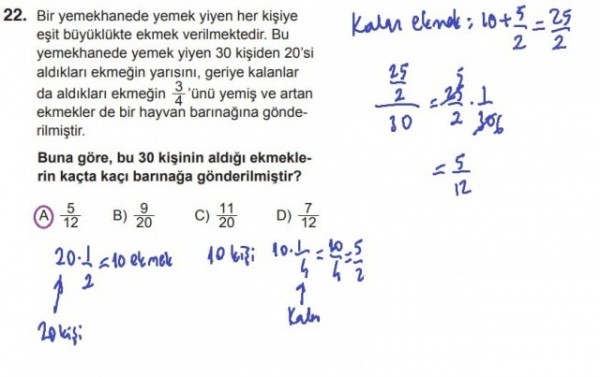 22. Bir yemekhanede yemek yiyen her kişiye
eşit büyüklükte ekmek verilmektedir. Bu
yemekhanede yemek yiyen 30 kişiden 20'si
aldıkları ekmeğin yarısını, geriye kalanlar
da aldıkları ekmeğin 3/4 'ünü yemiş ve artan
ekmekler de bir hayvan barınağına gönde-
rilmiştir.
Buna göre, bu 30 kişinin aldığı ekmekle-
rin kaçta kaçı barınağa gönderilmiştir?
A) 5/12 B) 9/20 C) 11/20 D) 7/12
20·1/2=10 ekmek
20 kişi
10 kişi 10·1/4=10/4=5/2
Kalan
Kalan ekmek: 10+5/2=25/2
25/2/30 = 25/2 · 1/30 5 6
=5/12